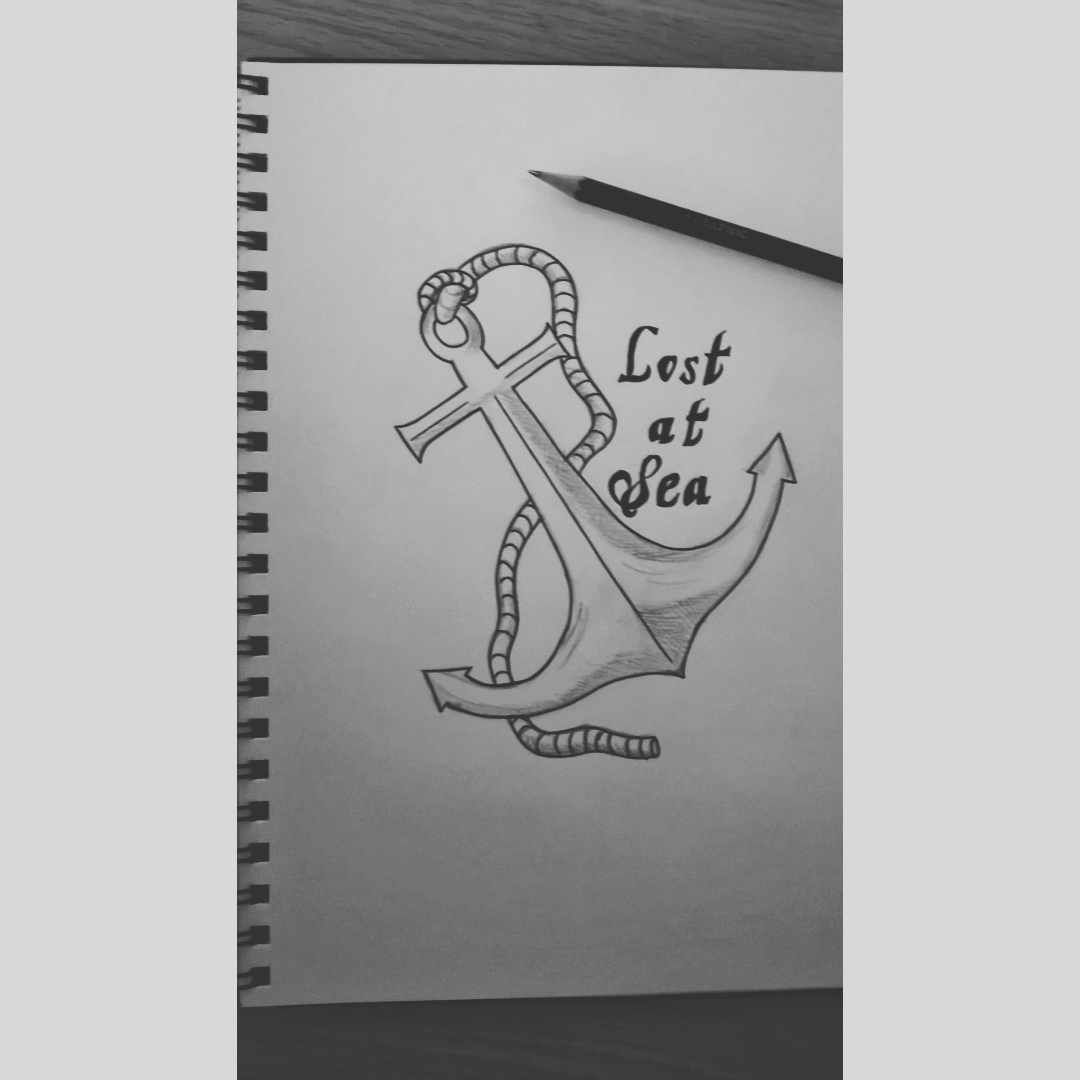 Lost
at
Sea